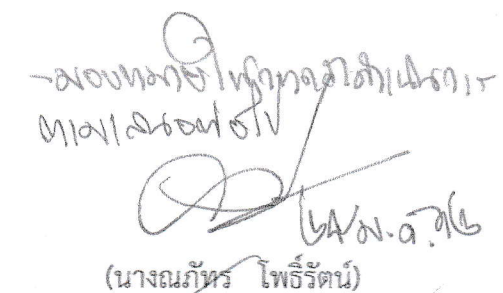 - มอบหมายให้ ดำเนินการ
ตามเสนอต่อไป
ม.ค.
(นางณภัทร โพธิ์รัตน์)